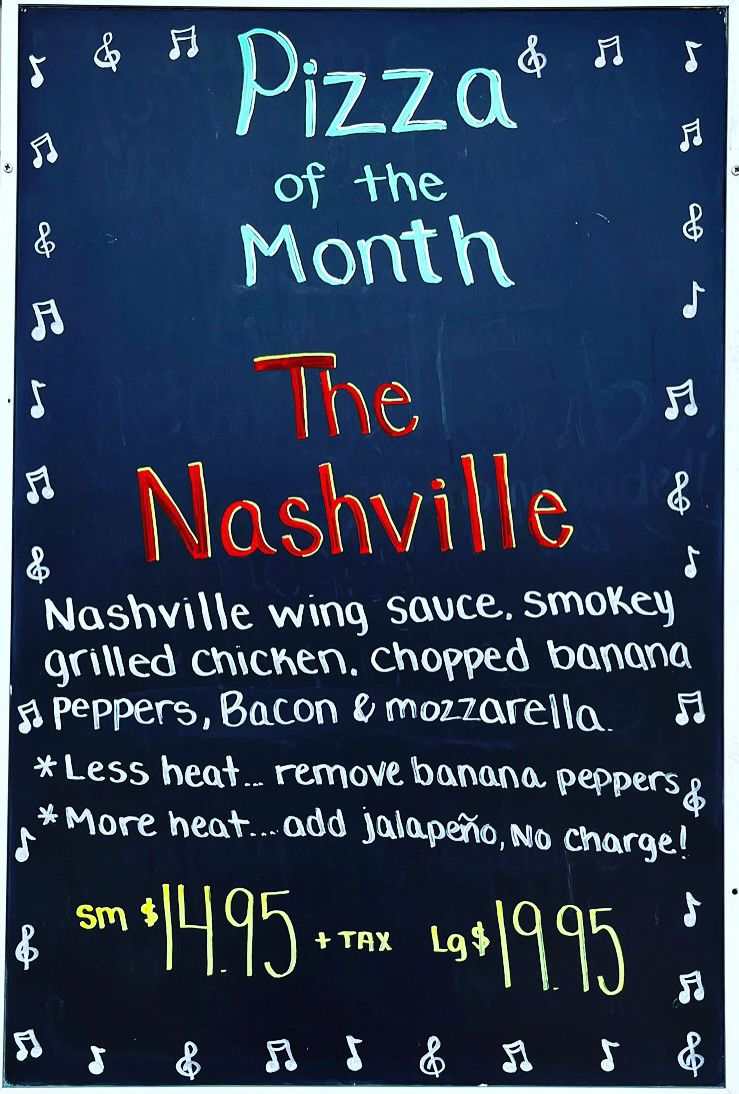 Pizza
of the
Month
The
Nashville
Nashville wing sauce, smokey
grilled chicken, chopped banana
peppers, Bacon & mozzarella.
*Less heat... remove banana peppers
*More heat... add jalapeño, No charge!
sm $14.95 + TAX Lg $19.95